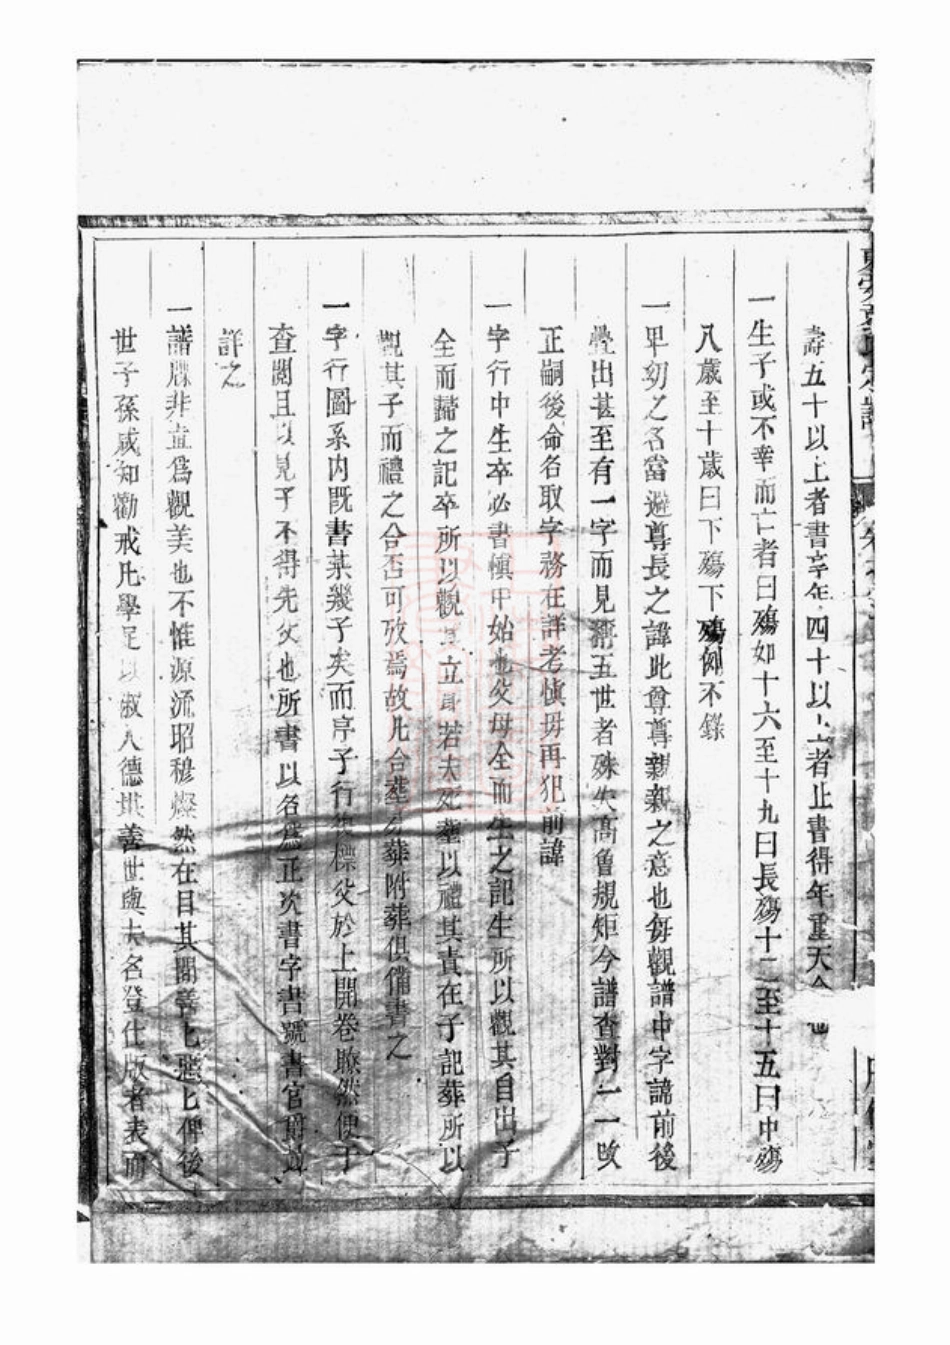 壽五十以上者書享年四十以上者止書得年重天
一生子或不幸而亡者曰殤如十六至十九曰長殤十二至十五曰中殤
八歲至十歲曰下殤下殤例不錄
一卑幼之名當避尊長之諱此尊尊親親之意也每觀譜中字諱前後
疊出甚至有一字而見於五世者殊失高曾規矩今譜查對一一改
正嗣後命名取字務在詳考慎毋再犯前諱
一字行中生卒必書慎甲始也父母全而生之記生所以觀其自出子
全而歸之記卒所以觀其立身若夫死葬以禮其責在子記葬所以
觀其子而禮之合否可攷焉故凡合葬另葬附葬俱備書之
一字行圖系內既書某幾子矣而序子行復標父於上開卷瞭然便于
查閱且以見子不得先父也所書以名為正次書字書號書官爵並
詳之
一譜牒非直爲觀美也不惟源流昭穆燦然在目其關善也俾後
世子孫咸知勸戒凡學足以淑人德堪善世與夫名登仕版者表而